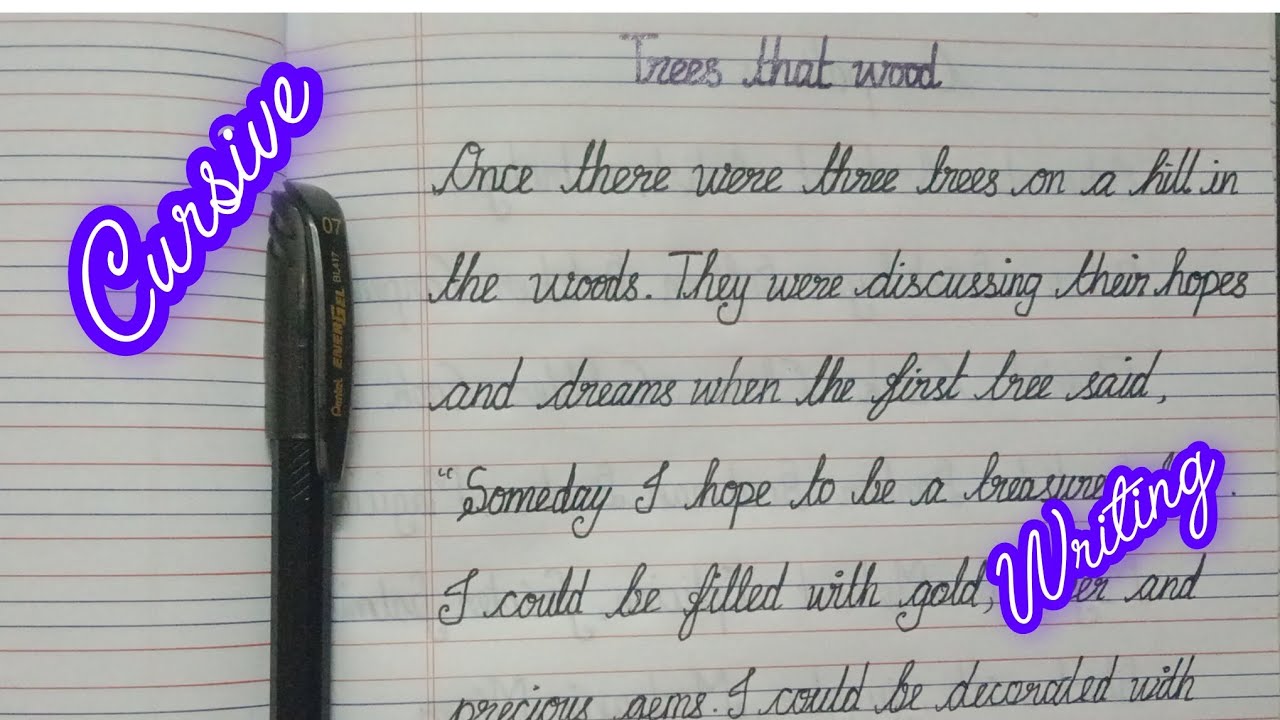 Cursive
Trees that wood
Once there were three trees on a hill in
the woods. They were discussing their hopes
and dreams when the first tree said,
"Someday I hope to be a treasure
I could be filled with gold, and
precious gems. I could be decorated with
Writing
07
Pentel ENERGEL BL417